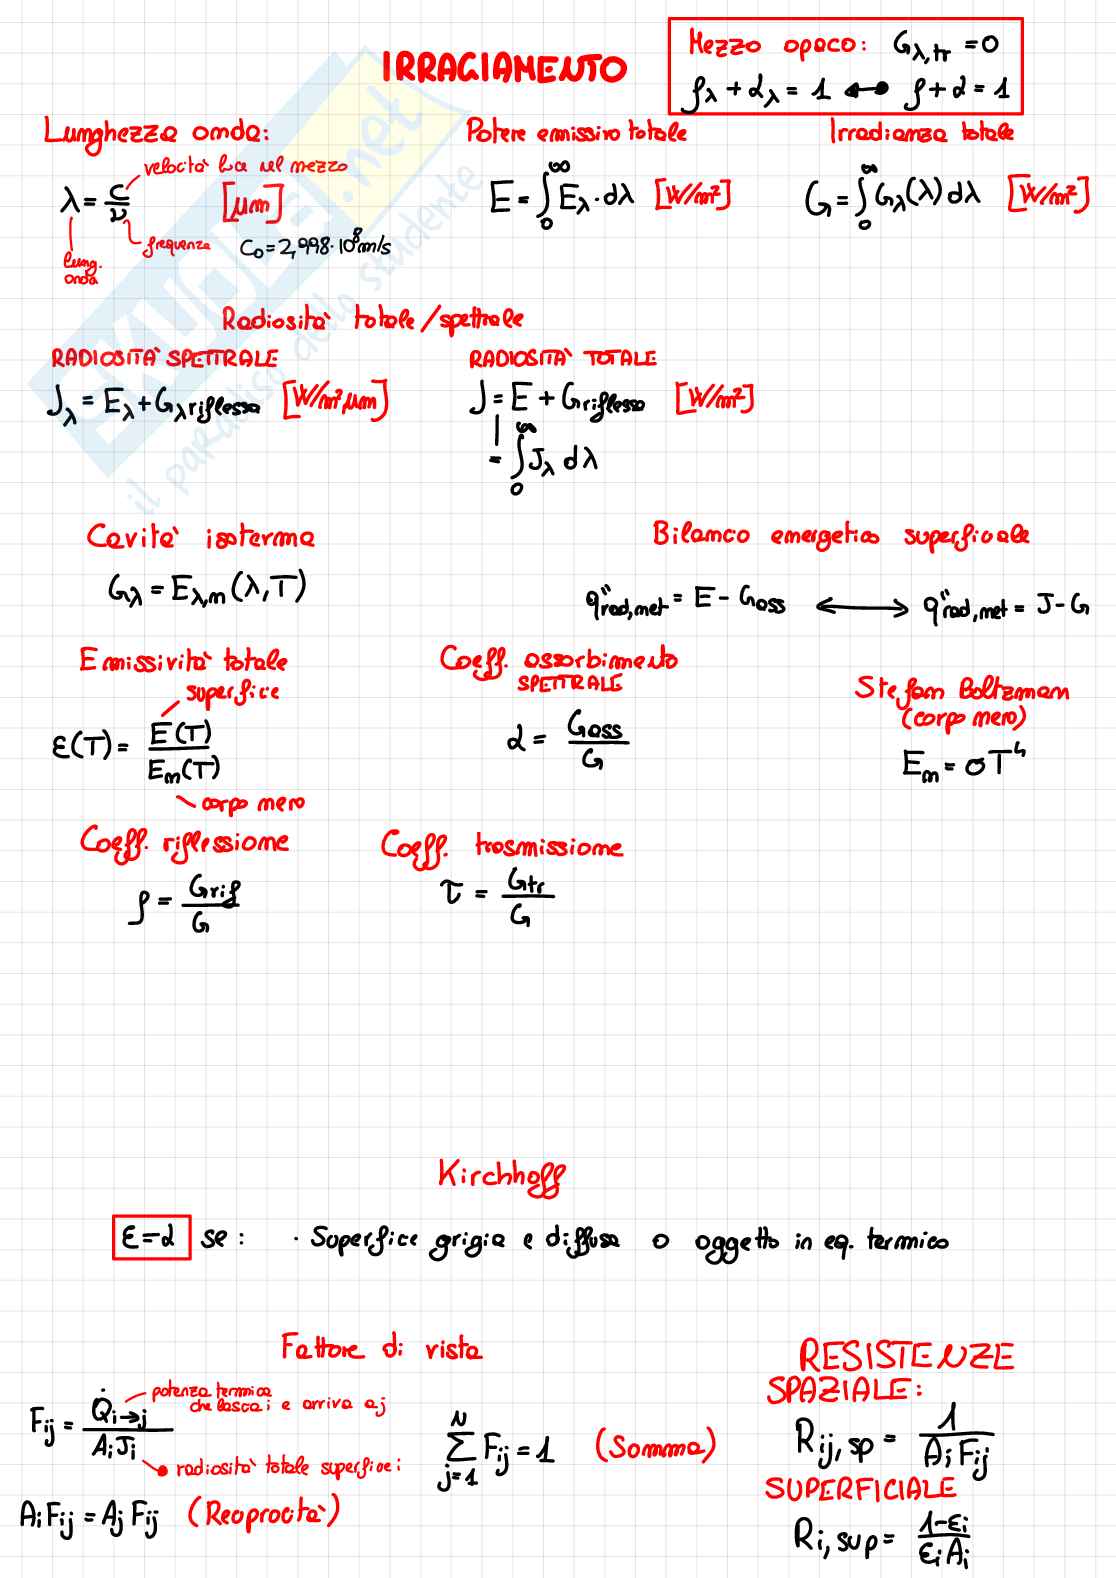 IRRAGIAMENTO
Mezzo opaco: Gλ,tr = 0
ρλ + αλ = 1 ↔ ρ + α = 1
Lunghezza onda:
λ = c/ν [μm]
velocità luce nel mezzo
frequenza
lung. onda
C₀ = 2,998·10⁸ m/s
Potere emissivo totale
E = ∫₀^∞ Eλ · dλ [W/m²]
Irradianza totale
G = ∫₀^∞ Gλ(λ) dλ [W/m²]
Radiosità totale/spettrale
RADIOSITÀ SPETTRALE
Jλ = Eλ + Gλriflessa [W/m²μm]
RADIOSITÀ TOTALE
J = E + Griflessa [W/m²]
= ∫₀^∞ Jλ dλ
Cavità isoterma
Gλ = Eλ,m (λ,T)
Bilanco energetico superficale
q"rad,net = E - Gass ↔ q"rad,net = J - G
Emissività totale
superfice
ε(T) = E(T)/Em(T)
corpo nero
Coeff. assorbimento
SPETTRALE
α = Gass/G
Stefam Boltzmam
(corpo nero)
Em = σT⁴
Coeff. riflessione
ρ = Grif/G
Coeff. trasmissione
τ = Gtr/G
Kirchhoff
ε=α se: · Superfice grigia e diffusa o oggetto in eq. termico
Fattore di vista
Fij = Q̇i→j/AiJi
potenza termica
che lascai e arriva aj
radiosità totale superficei
∑_{j=1}^{N} Fij = 1 (Somma)
AiFij = AjFij (Reciprocità)
RESISTENZE
SPAZIALE:
Rij,sp = 1/AiFij
SUPERFICIALE
Ri,sup = 1-εi/εiAi
SKUOLA.net
il paradiso dello studente